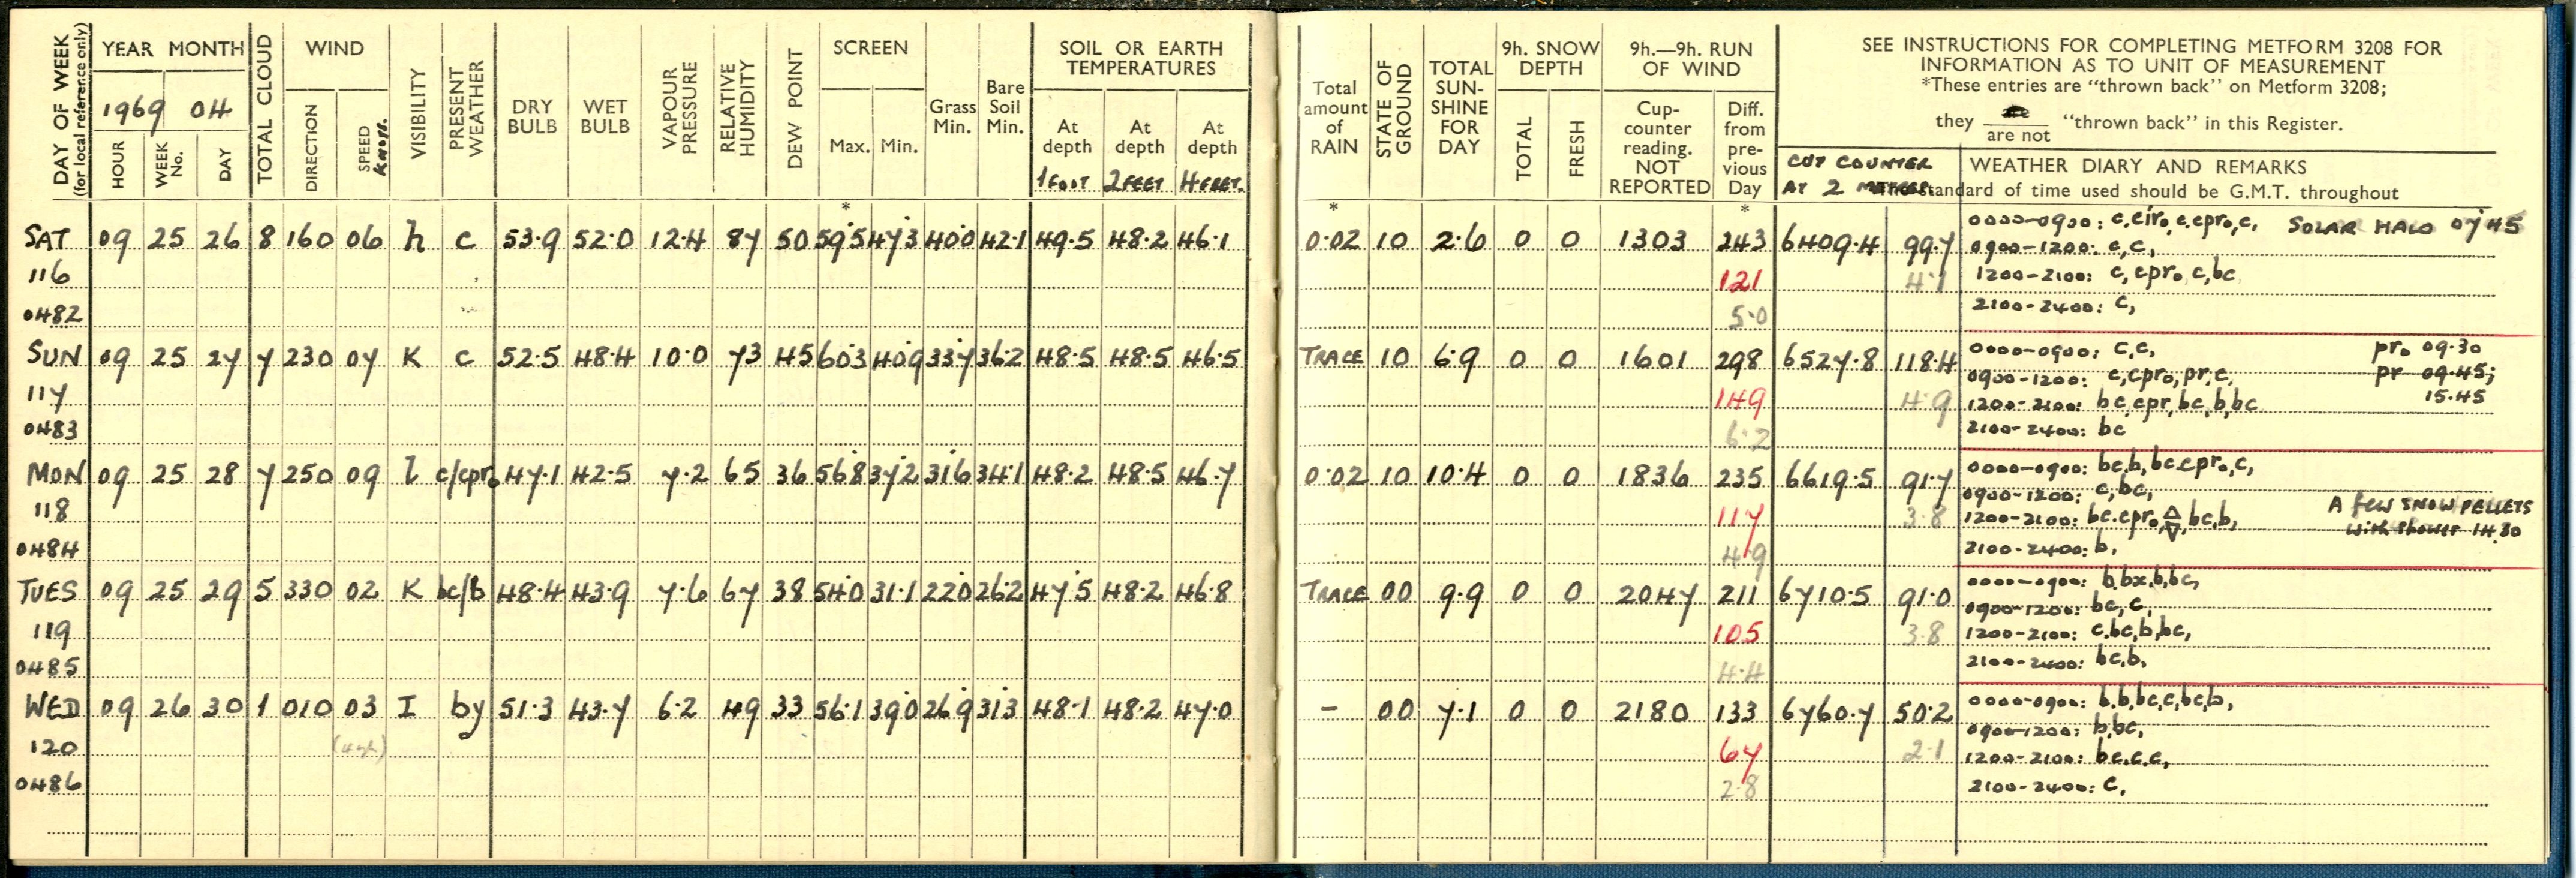 DAY OF WEEK (for local reference only)
YEAR MONTH
1969 04
HOUR WEEK No. DAY
TOTAL CLOUD
WIND
DIRECTION SPEED KNOTS.
VISIBILITY
PRESENT WEATHER
DRY BULB
WET BULB
VAPOUR PRESSURE
RELATIVE HUMIDITY
DEW POINT
SCREEN
Max. Min.
*
Grass Min.
Bare Soil Min.
SOIL OR EARTH TEMPERATURES
At depth 1 FOOT
At depth 2 FEET
At depth 4 FEET.
Total amount of RAIN
*
STATE OF GROUND
TOTAL SUN-SHINE FOR DAY
9h. SNOW DEPTH
TOTAL FRESH
9h.—9h. RUN OF WIND
Cup-counter reading. NOT REPORTED
Diff. from pre-vious Day
*
SEE INSTRUCTIONS FOR COMPLETING METFORM 3208 FOR
INFORMATION AS TO UNIT OF MEASUREMENT
*These entries are "thrown back" on Metform 3208;
they are not "thrown back" in this Register.
CUP COUNTER
AT 2 METRES
WEATHER DIARY AND REMARKS
standard of time used should be G.M.T. throughout
SAT 09 25 26 8 160 06 h c 53.9 52.0 12.4 87 50 59.5 47.3 40.0 42.1 49.5 48.2 46.1 0.02 10 2.6 0 0 1303 243 6409.4 99.7
0000-0900: c, SOLAR HALO 0745
0900-1200: c,c,
116 121 4.1 1200-2100: c,cpr₀,c,bc
0482 5.0 2100-2400: c,
SUN 09 25 27 7 230 07 K c 52.5 48.4 10.0 73 45 60.3 40.9 33.7 36.2 48.5 48.5 46.5 TRACE 10 6.9 0 0 1601 298 6527.8 118.4
0000-0900: c,c, pr₀ 09.30
0900-1200: c,cpr₀,pr,c, pr 09.45;
117 149 4.9 1200-2100: bc,cpr,bc,b,bc 15.45
0483 6.2 2100-2400: bc
MON 09 25 28 7 250 09 l c/cpr₀ 47.1 42.5 7.2 65 36 56.8 37.2 31.6 34.1 48.2 48.5 46.7 0.02 10 10.4 0 0 1836 235 6619.5 91.7
0000-0900: bc,b,bc,cpr₀,c,
0900-1200: c,bc,
118 117 3.8 1200-2100: bc,cpr₀, bc,b, A few SNOW PELLETS
with shower 14.30
0484 4.9 2100-2400: b,
TUES 09 25 29 5 330 02 K bc/b 48.4 43.9 7.6 67 38 54.0 31.1 22.0 26.2 47.5 48.2 46.8 TRACE 00 9.9 0 0 2047 211 6710.5 91.0
0000-0900: b,bx,b,bc,
0900-1200: bc,c,
119 105 3.8 1200-2100: c,bc,b,bc,
0485 4.4 2100-2400: bc,b,
WED 09 26 30 1 010 03 I by 51.3 43.7 6.2 49 33 56.1 39.0 26.9 31.3 48.1 48.2 47.0 - 00 7.1 0 0 2180 133 6760.7 50.2
0000-0900: b,b,bc,c,bc,b,
0900-1200: b,bc,
120 67 2.1 1200-2100: bc,c,c,
0486 2.8 2100-2400: c,